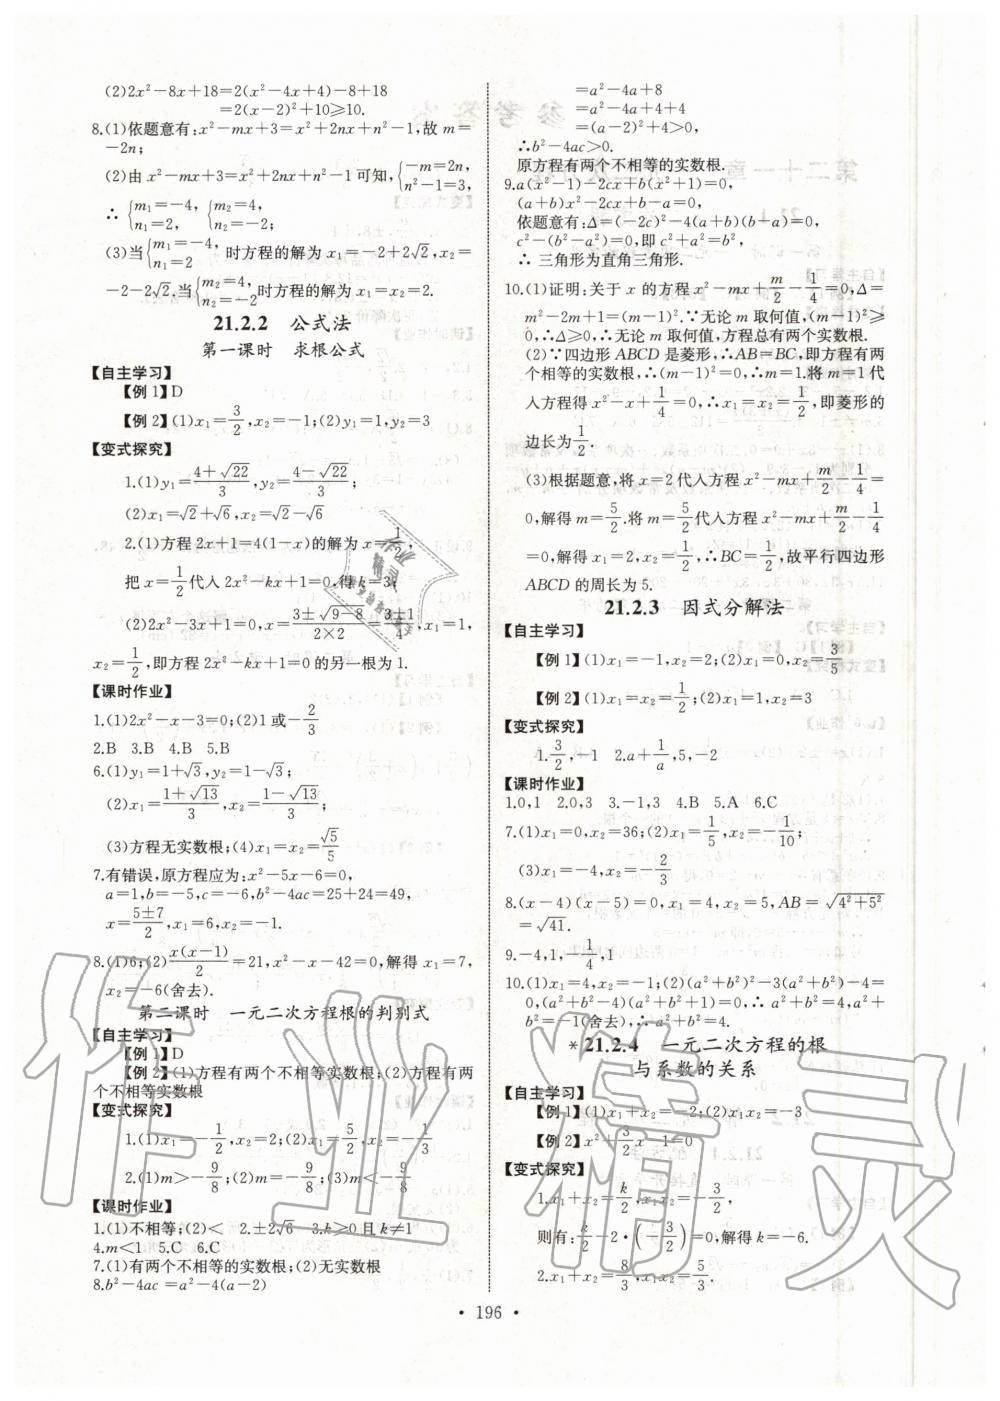 (2)2x²-8x+18=2(x²-4x+4)-8+18
=2(x-2)²+10≥10.
8.(1)依题意有:x²-mx+3=x²+2nx+n²-1,故 m=
-2n;
(2)由 x²-mx+3=x²+2nx+n²-1 可知,{-m=2n, n²-1=3,
∴{m₁=-4, n₁=2, {m₂=4, n₂=-2;
(3)当{m₁=-4, n₁=2 时方程的解为 x₁=-2+2√2,x₂=
-2-2√2,当{m₂=4, n₂=-2 时方程的解为 x₁=x₂=2.
21.2.2 公式法
第一课时 求根公式
【自主学习】
【例 1】D
【例 2】(1)x₁=3/2,x₂=-1;(2)y₁=1,y₂=3
【变式探究】
1.(1)y₁=(4+√22)/3,y₂=(4-√22)/3
(2)x₁=√2+√6,x₂=√2-√6
2.(1)方程 2x+1=4(1-x)的解为 x=1/2,
把 x=1/2代入 2x²-kx+1=0,得 k=3;
(2)2x²-3x+1=0,x=(3±√(9-8))/(2×2)=(3±1)/4,x₁=1,
x₂=1/2,即方程 2x²-kx+1=0 的另一根为 1.
【课时作业】
1.(1)2x²-x-3=0;(2)1 或-2/3
2.B 3.B 4.B 5.B
6.(1)y₁=1+√3,y₂=1-√3;
(2)x₁=(1+√13)/3,x₂=(1-√13)/3;
(3)方程无实数根;(4)x₁=x₂=√5/5
7.有错误,原方程应为:x²-5x-6=0,
a=1,b=-5,c=-6,b²-4ac=25+24=49,
x=(5±7)/2,x₁=6,x₂=-1.
8.(1)6;(2)x(x-1)/2=21,x²-x-42=0,解得 x₁=7,
x₂=-6(舍去).
第二课时 一元二次方程根的判别式
【自主学习】
【例 1】D
【例 2】(1)方程有两个不相等实数根;(2)方程有两
个不相等实数根
【变式探究】
1.(1)x₁=-1/2,x₂=2;(2)x₁=5/2,x₂=1
2.(1)m>-9/8;(2)m=-9/8;(3)m<-9/8
【课时作业】
1.(1)不相等;(2)< 2.±2√6 3.k≥0 且 k≠1
4.m<1 5.C 6.C
7.(1)有两个不相等的实数根;(2)无实数根
8.b²-4ac=a²-4(a-2)
=a²-4a+8
=a²-4a+4+4
=(a-2)²+4>0,
∴b²-4ac>0.
原方程有两个不相等的实数根.
9.a(x²-1)-2cx+b(x²+1)=0,
(a+b)x²-2cx+b-a=0,
依题意有:Δ=(-2c)²-4(a+b)(b-a)=0,
c²-(b²-a²)=0,即 c²+a²=b²,
∴ 三角形为直角三角形.
10.(1)证明:关于 x 的方程 x²-mx+m/2-1/4=0,Δ=
m²-2m+1=(m-1)².∵无论 m 取何值,(m-1)²≥
0,∴Δ≥0,∴无论 m 取何值,方程总有两个实数根.
(2)∵四边形 ABCD 是菱形,∴AB=BC,即方程有两
个相等的实数根,∴(m-1)²=0,∴m=1.将 m=1 代
入方程得 x²-x+1/4=0,∴x₁=x₂=1/2,即菱形的
边长为1/2.
(3)根据题意,将 x=2代入方程 x²-mx+m/2-1/4=
=0,解得 m=5/2.将 m=5/2代入方程 x²-mx+m/2-1/4
=0,解得 x₁=2,x₂=1/2,∴BC=1/2,故平行四边形
ABCD 的周长为 5.
21.2.3 因式分解法
【自主学习】
【例 1】(1)x₁=-1,x₂=2;(2)x₁=0,x₂=3/5
【例 2】(1)x₁=-x₂=1/2;(2)x₁=1,x₂=3
【变式探究】
1.3/2,-1 2.a+1/a,5,-2
【课时作业】
1.0,1 2.0,3 3.-1,3 4.B 5.A 6.C
7.(1)x₁=0,x₂=36;(2)x₁=1/5,x₂=-1/10;
(3)x₁=-4,x₂=-2/3
8.(x-4)(x-5)=0,x₁=4,x₂=5,AB=√(4²+5²)
=√41.
9.-4,1,-1/4,1
10.(1)x₁=4,x₂=-1;(2)(a²+b²)²-3(a²+b²)-4=
0,(a²+b²-4)(a²+b²+1)=0,∴a²+b²=4,a²+
b²=-1(舍去),∴a²+b²=4.
*21.2.4 一元二次方程的根
与系数的关系
【自主学习】
【例 1】(1)x₁+x₂=-2;(2)x₁x₂=-3
【例 2】x²+3/2x-1=0
【变式探究】
1.x₁+x₂=k/2,x₁x₂=-3/2,
则有:k/2-2·(-3/2)=0,解得 k=-6.
2.x₁+x₂=8/3,x₁x₂=5/3.
• 196 •
作业精灵